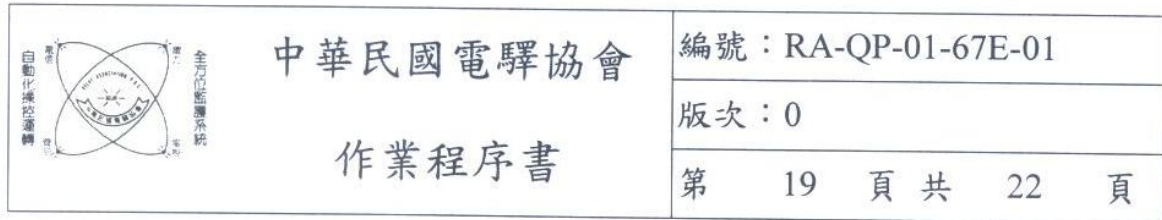 自動化操控運轉
全方位監護系統
中華民國電驛協會
作業程序書
編號：RA-QP-01-67E-01
版次：0
第 19 頁 共 22 頁